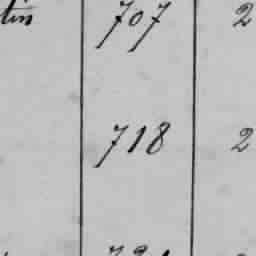 tin 707 2
718 2